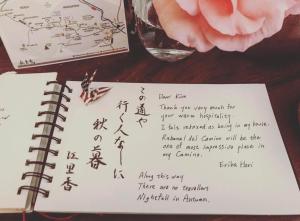 この道や
行く人なしに
秋の暮
江里香
Dear Kim
Thank you very much for
your warm hospitality.
I felt relaxed as being in my house.
Rabanal del Camino will be the
one of most impressive place in
my Camino.
Erika Hori
Along this way
There are no travellers
Nightfall in Autumn.